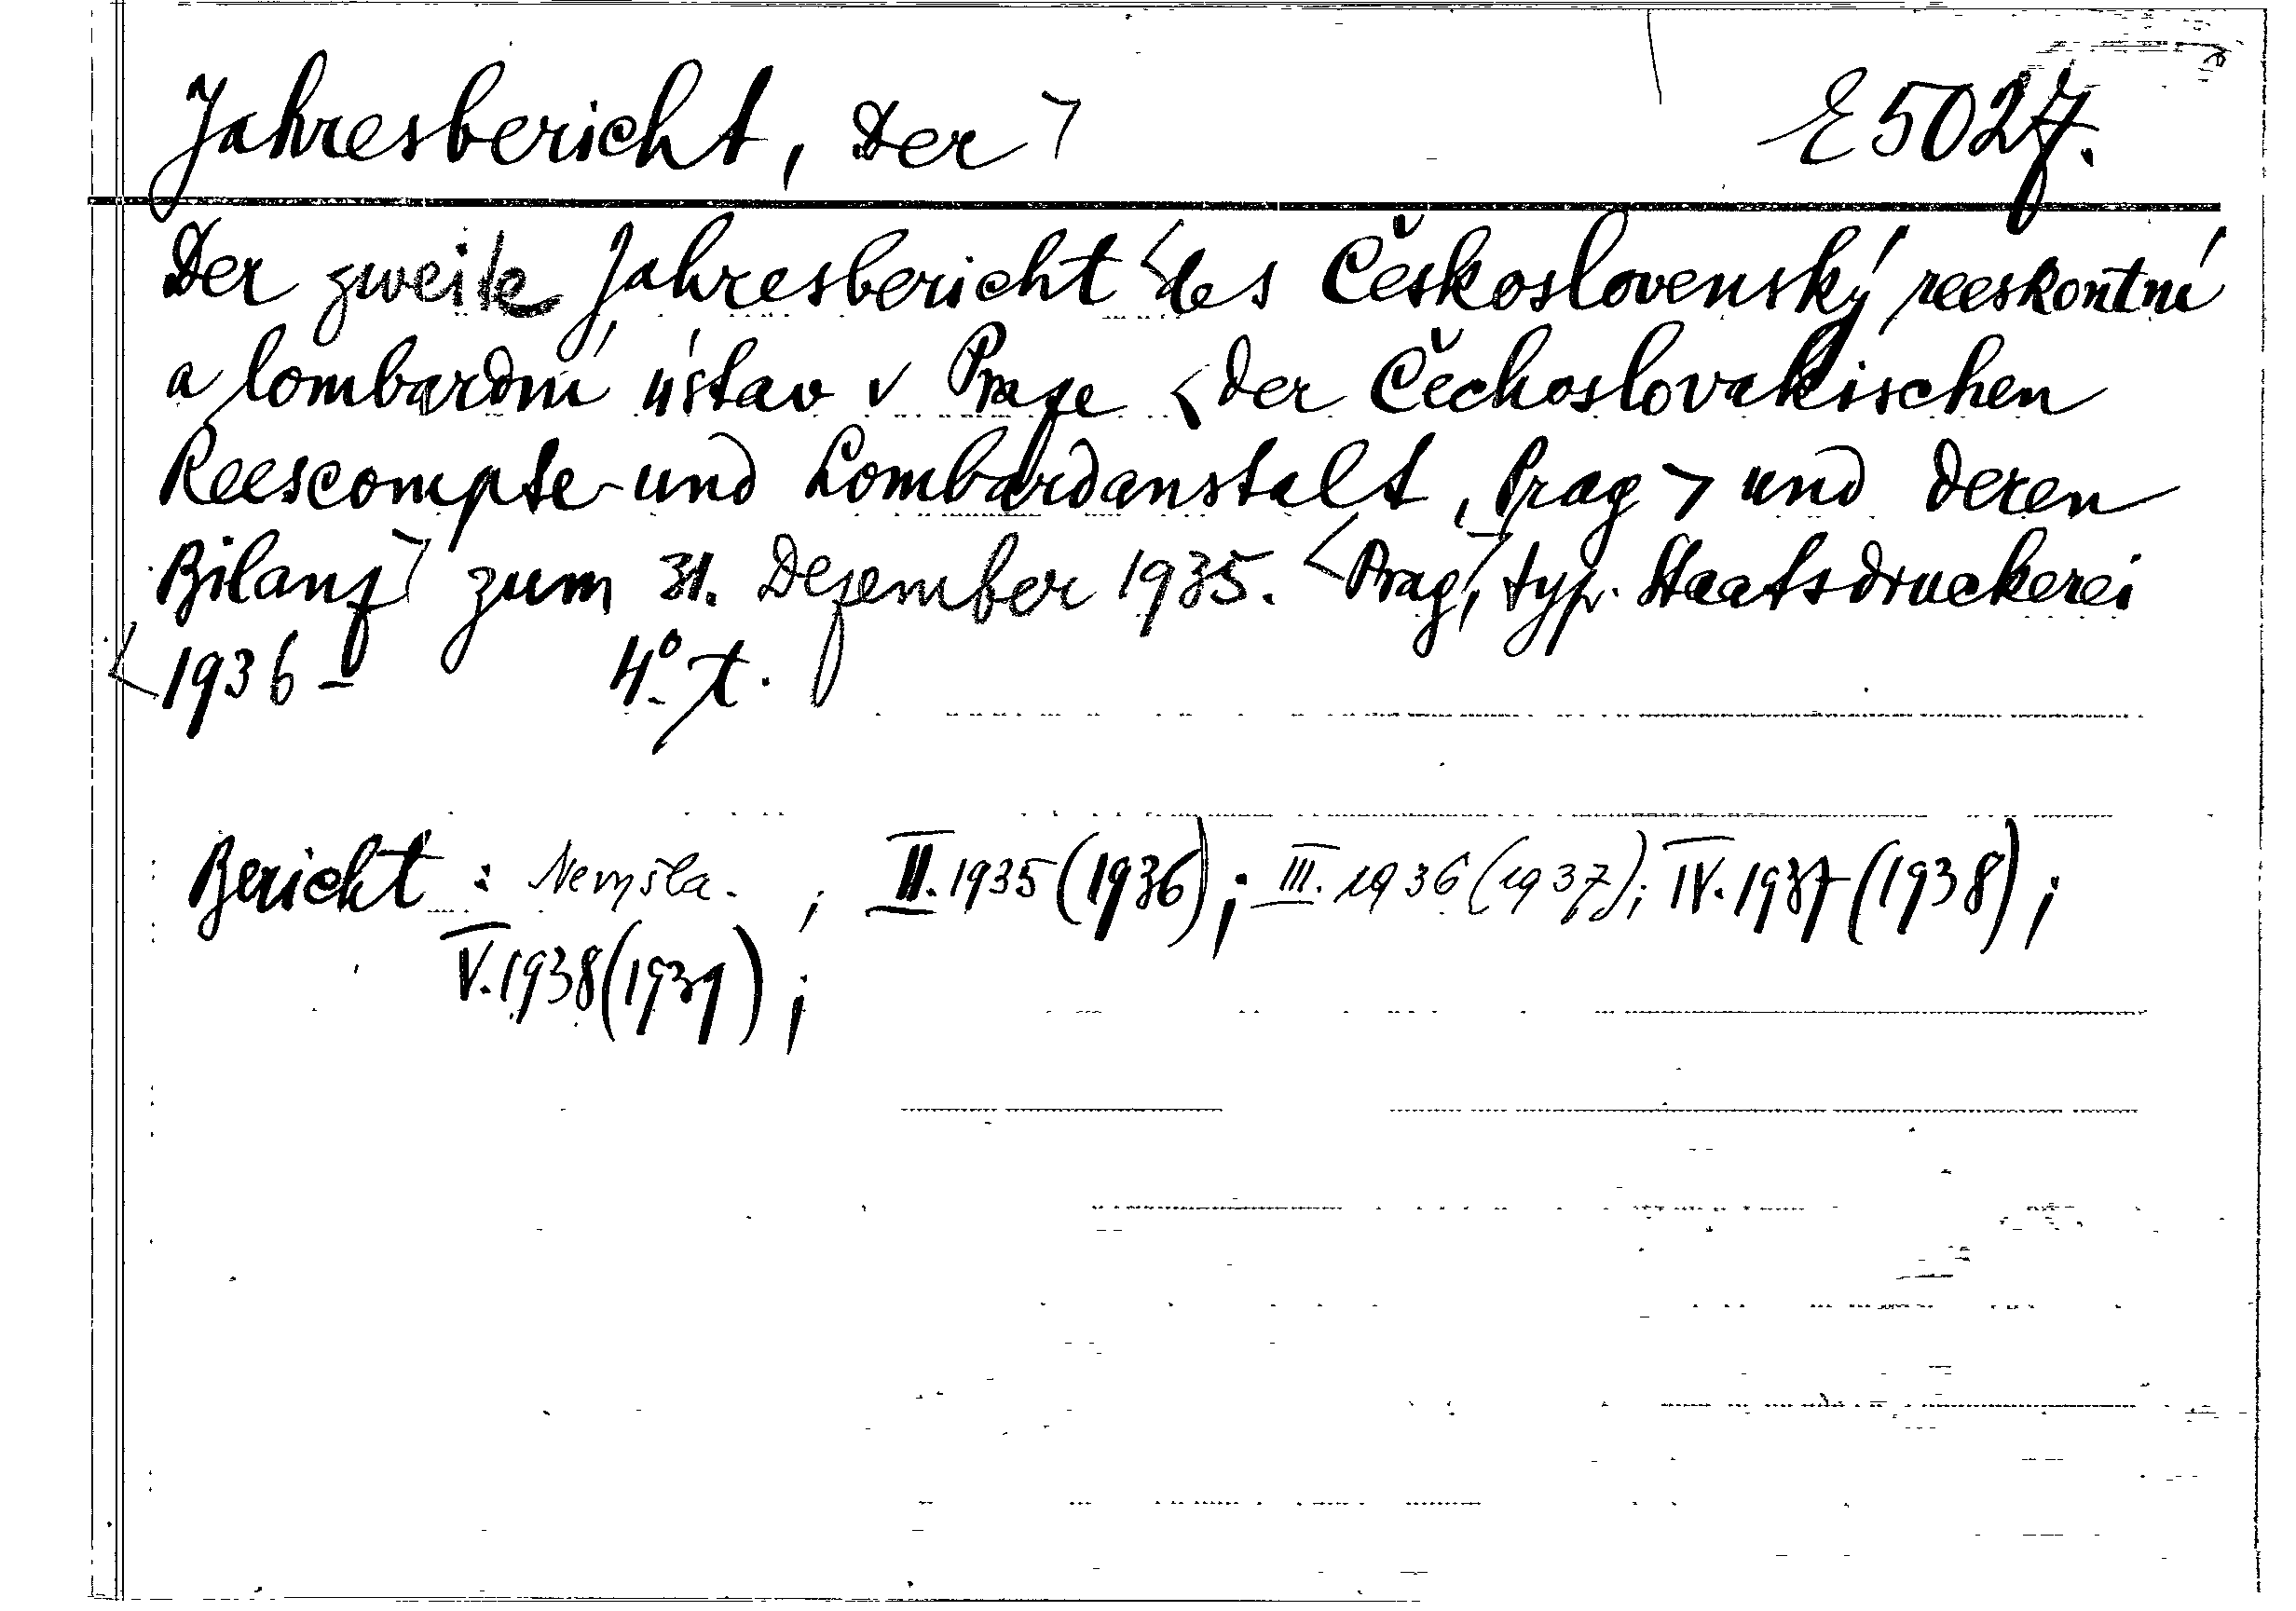 Jahresbericht, Der > E 5027.
Der zweite Jahresbericht <des Československý reeskontní
a lombardní ústav v Praze <der Čechoslovakischen
Reescompte- und Lombardanstalt, Prag> und deren
Bilanz> zum 31. Dezember 1935. <Prag>, typ. Staatsdruckerei
<1936 - 4° t.
Bericht : Nevyšla. ; II. 1935 (1936); III. 1936 (1937); IV. 1937 (1938);
V. 1938 (1939);